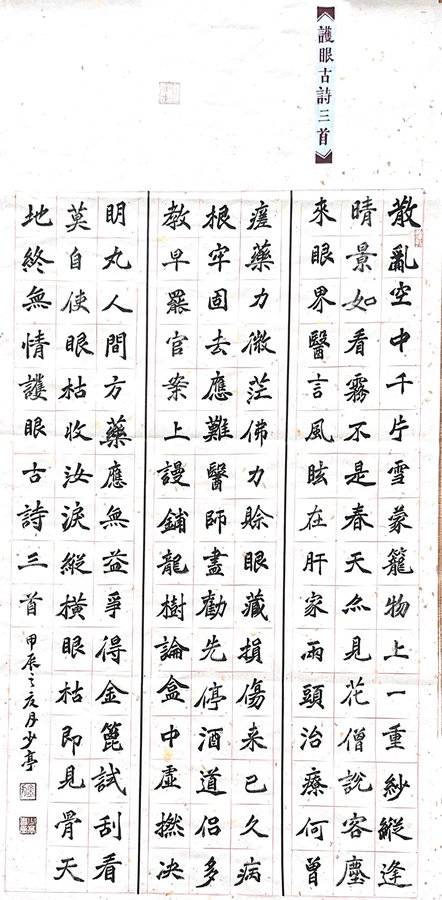 《護眼古詩三首》
散亂空中千片雪蒙籠物上一重紗縱逢
晴景如看霧不是春天亦見花僧說客塵
来眼界醫言風眩在肝家兩頭治療何曾
瘥藥力微茫佛力賒眼藏損傷来已久病
根牢固去應難醫師盡勸先停酒道侶多
教早罷官案上謾鋪龍樹論盒中虛撚决
明丸人間方藥應無益爭得金篦試刮看
莫自使眼枯收汝淚縱橫眼枯即見骨天
地終無情護眼古詩三首甲辰之夏月少亭